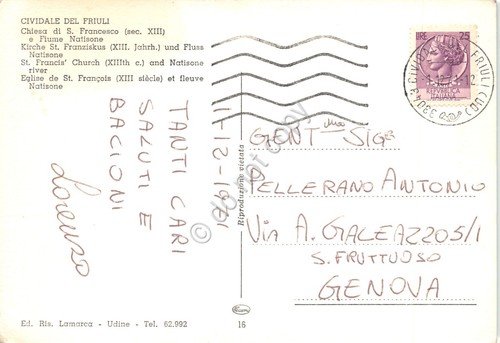 CIVIDALE DEL FRIULI
Chiesa di S. Francesco (sec. XIII)
e Fiume Natisone
Kirche St. Franziskus (XIII. Jahrh.) und Fluss
Natisone
St. Francis' Church (XIIIth c.) and Natisone
river
Eglise de St. François (XIII siècle) et fleuve
Natisone
LIRE 25
REPUBBLICA
ITALIANA
CIVIDALE FRIULI (UD)
33043
11-12-1971
TANTI CARI
SALUTI E
BACIONI
Lorenzo
Riproduzione vietata
do not copy
GENT.ma SIG.
PELLERANO ANTONIO
VIA A. GALEAZZO 5/1
S. FRUTTUOSO
GENOVA
Ed. Ris. Lamarca - Udine - Tel. 62.992
16